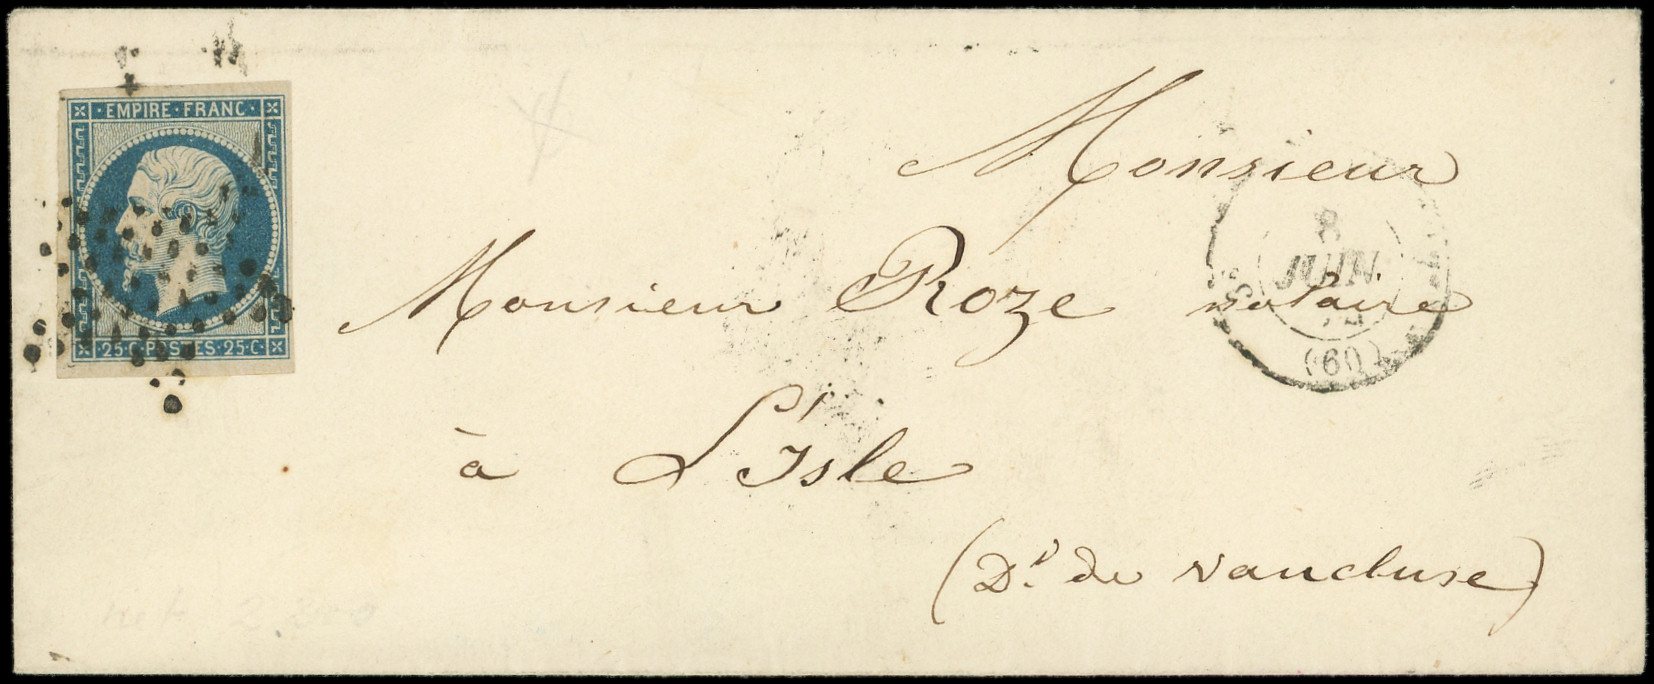 EMPIRE · FRANC ·
· 25 · C · POSTES · 25 · C ·
Monsieur
Monsieur Roze notaire
à L'Isle
(Dt de Vaucluse)
8
JUIN
(60)
net 2 300